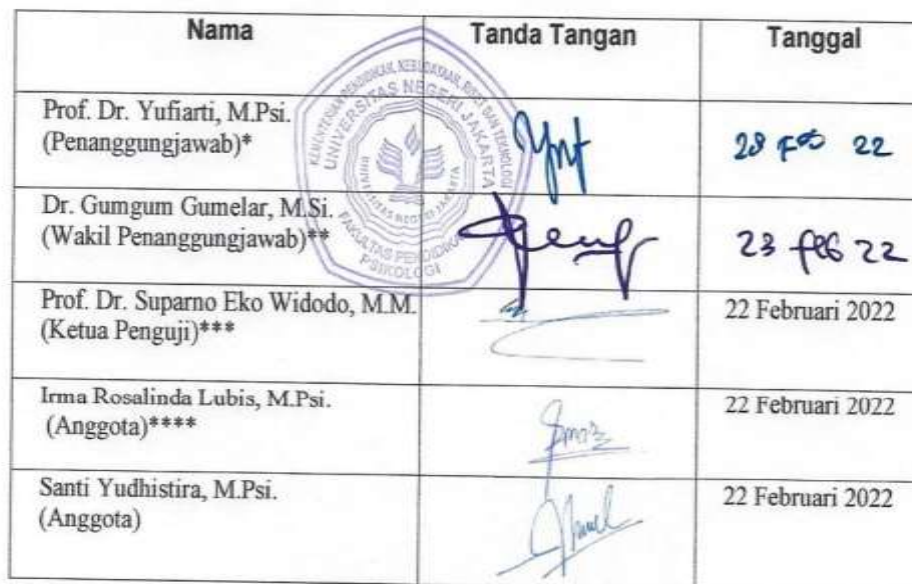 Nama Tanda Tangan Tanggal
Prof. Dr. Yufiarti, M.Psi.
(Penanggungjawab)*
28 Feb 22
Dr. Gumgum Gumelar, M.Si.
(Wakil Penanggungjawab)**
23 feb 22
Prof. Dr. Suparno Eko Widodo, M.M.
(Ketua Penguji)***
22 Februari 2022
Irma Rosalinda Lubis, M.Psi.
(Anggota)****
22 Februari 2022
Santi Yudhistira, M.Psi.
(Anggota)
22 Februari 2022
KEMENTERIAN PENDIDIKAN, KEBUDAYAAN, RISET DAN TEKNOLOGI
UNIVERSITAS NEGERI JAKARTA
UNIVERSITAS NEGERI JAKARTA
FAKULTAS PENDIDIKAN
PSIKOLOGI